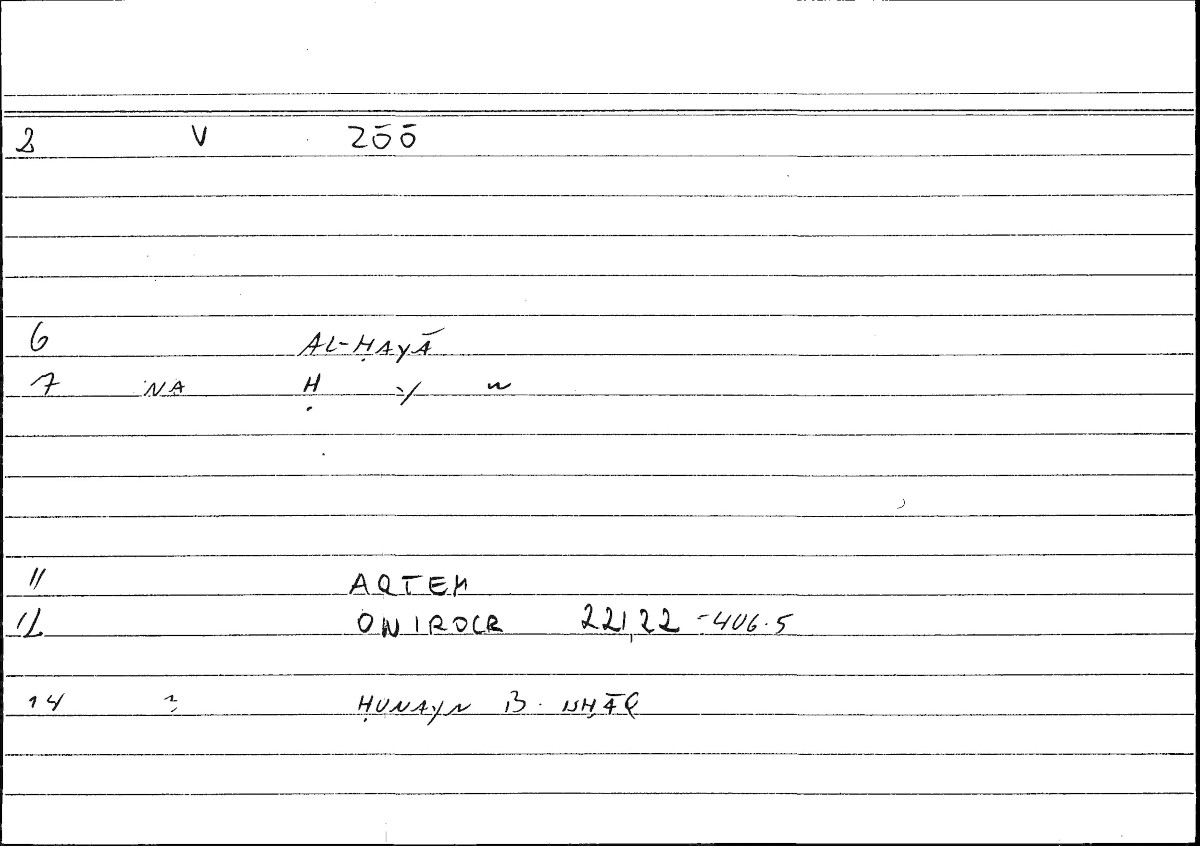 2 V ZŌŌ
6 AL-ḤAYĀ
7 NA Ḥ Y
11 ARTEM
12 ONIROCR 221,22-406.5
14 ḤUNAYN B. ISḤĀQ